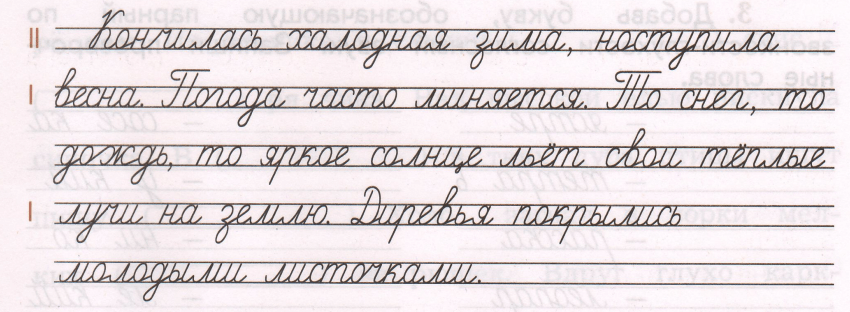 II Кончилась халодная зима, ноступила
I весна. Погода часто миняется. То снег, то
дождь, то яркое солнце льёт свои тёплые
I лучи на землю. Диревья покрылись
молодыми листочками.